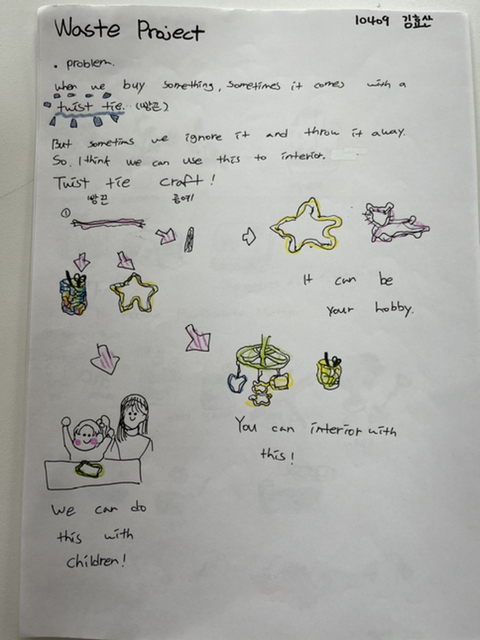 Waste Project
10409 김효산
• problem.
When we buy something, sometimes it comes with a
twist tie. (빵끈)
But sometims we ignore it and throw it away.
So, I think we can use this to interior.
Twist tie craft!
빵끈
①
It can be
your hobby.
You can interior with
this!
We can do
this with
children!